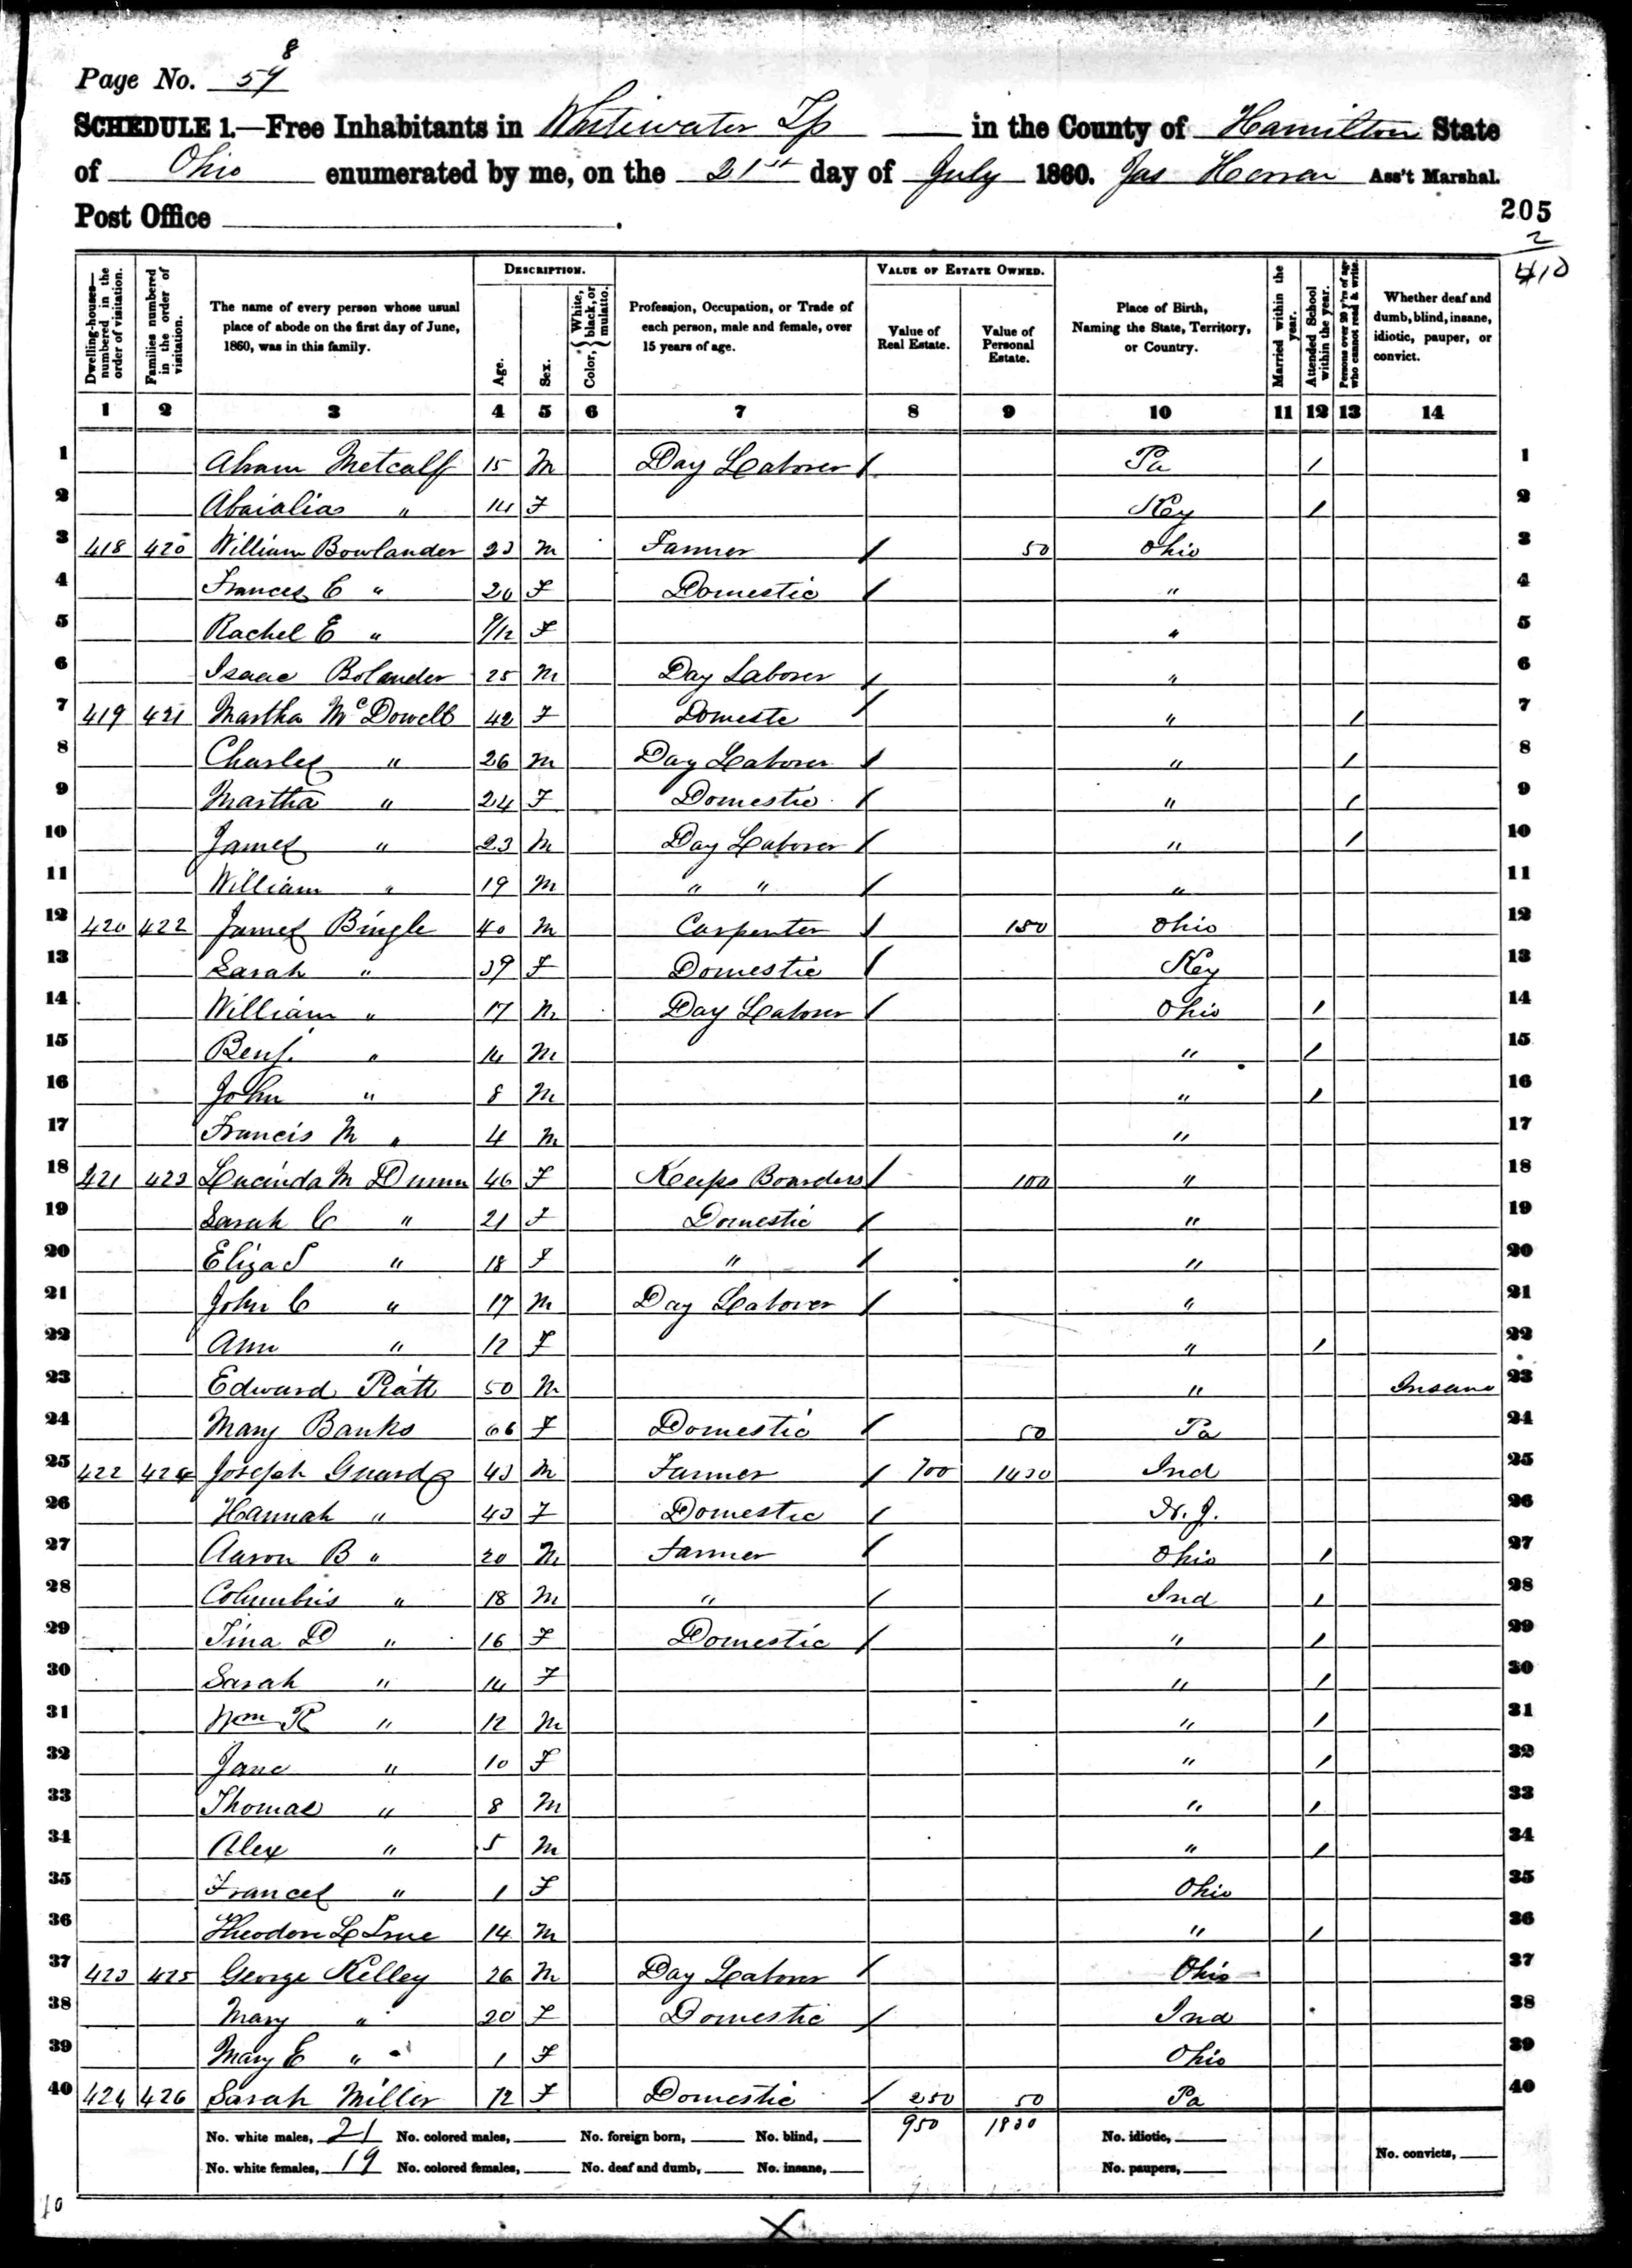 Page No. 59 8
SCHEDULE 1.—Free Inhabitants in Whitewater Tp in the County of Hamilton State
of Ohio enumerated by me, on the 21st day of July 1860. Jas Ass't Marshal.
Post Office .
205
2
410
Dwelling-houses—numbered in the order of visitation.
Families numbered in the order of visitation.
The name of every person whose usual place of abode on the first day of June, 1860, was in this family.
DESCRIPTION.
Age.
Sex.
Color, { White, black, or mulatto.
Profession, Occupation, or Trade of each person, male and female, over 15 years of age.
VALUE OF ESTATE OWNED.
Value of Real Estate.
Value of Personal Estate.
Place of Birth, Naming the State, Territory, or Country.
Married within the year.
Attended School within the year.
Persons over 20 y'rs of age who cannot read & write.
Whether deaf and dumb, blind, insane, idiotic, pauper, or convict.
1 2 3 4 5 6 7 8 9 10 11 12 13 14
1 Abram Metcalf 15 M Day Laborer / Pa / 1
2 " 14 F Key / 2
3 418 420 William Bowlander 23 M Farmer / 50 Ohio 3
4 Frances E " 20 F Domestic / " 4
5 Rachel E " 9/12 F " 5
6 Isaac Bolander 25 M Day Laborer / " 6
7 419 421 Martha McDowell 42 F Domestc / " / 7
8 Charles " 26 M Day Laborer / " / 8
9 Martha " 24 F Domestic / " / 9
10 James " 23 M Day Laborer / " / 10
11 William " 19 M " " / " 11
12 420 422 James Bingle 40 M Carpenter / 150 Ohio 12
13 Sarah " 39 F Domestic / Key 13
14 William " 17 M Day Laborer / Ohio / 14
15 Benj. " 14 M " / 15
16 John " 8 M " / 16
17 Francis M " 4 M " 17
18 421 423 Lucinda M Dunn 46 F Keeps Boarders / 100 " 18
19 Sarah C " 21 F Domestic / " 19
20 Eliza S " 18 F " / " 20
21 John C " 17 M Day Laborer / " 21
22 Ann " 12 F " / 22
23 Edward Piatt 50 M " Insane 23
24 Mary Banks 66 F Domestic / 50 Pa 24
25 422 424 Joseph Guard 43 M Farmer / 700 1430 Ind 25
26 Hannah " 43 F Domestic / N. J. 26
27 Aaron B " 20 M Farmer / Ohio / 27
28 Columbus " 18 M " / Ind / 28
29 Tina D " 16 F Domestic / " / 29
30 Sarah " 14 F " / 30
31 Wm R " 12 M " / 31
32 Jane " 10 F " / 32
33 Thomas " 8 M " / 33
34 Alex " 5 M " / 34
35 Frances " 1 F Ohio 35
36 Theodore 14 M " / 36
37 423 425 George Kelley 26 M Day Laborer / Ohio 37
38 Mary " 20 F Domestic / Ind 38
39 Mary E " 1 F Ohio 39
40 424 426 Sarah Miller 72 F Domestic / 250 50 Pa 40
950 1830
No. white males, 21 No. colored males, No. foreign born, No. blind, No. idiotic,
No. white females, 19 No. colored females, No. deaf and dumb, No. insane, No. paupers, No. convicts,
10
X